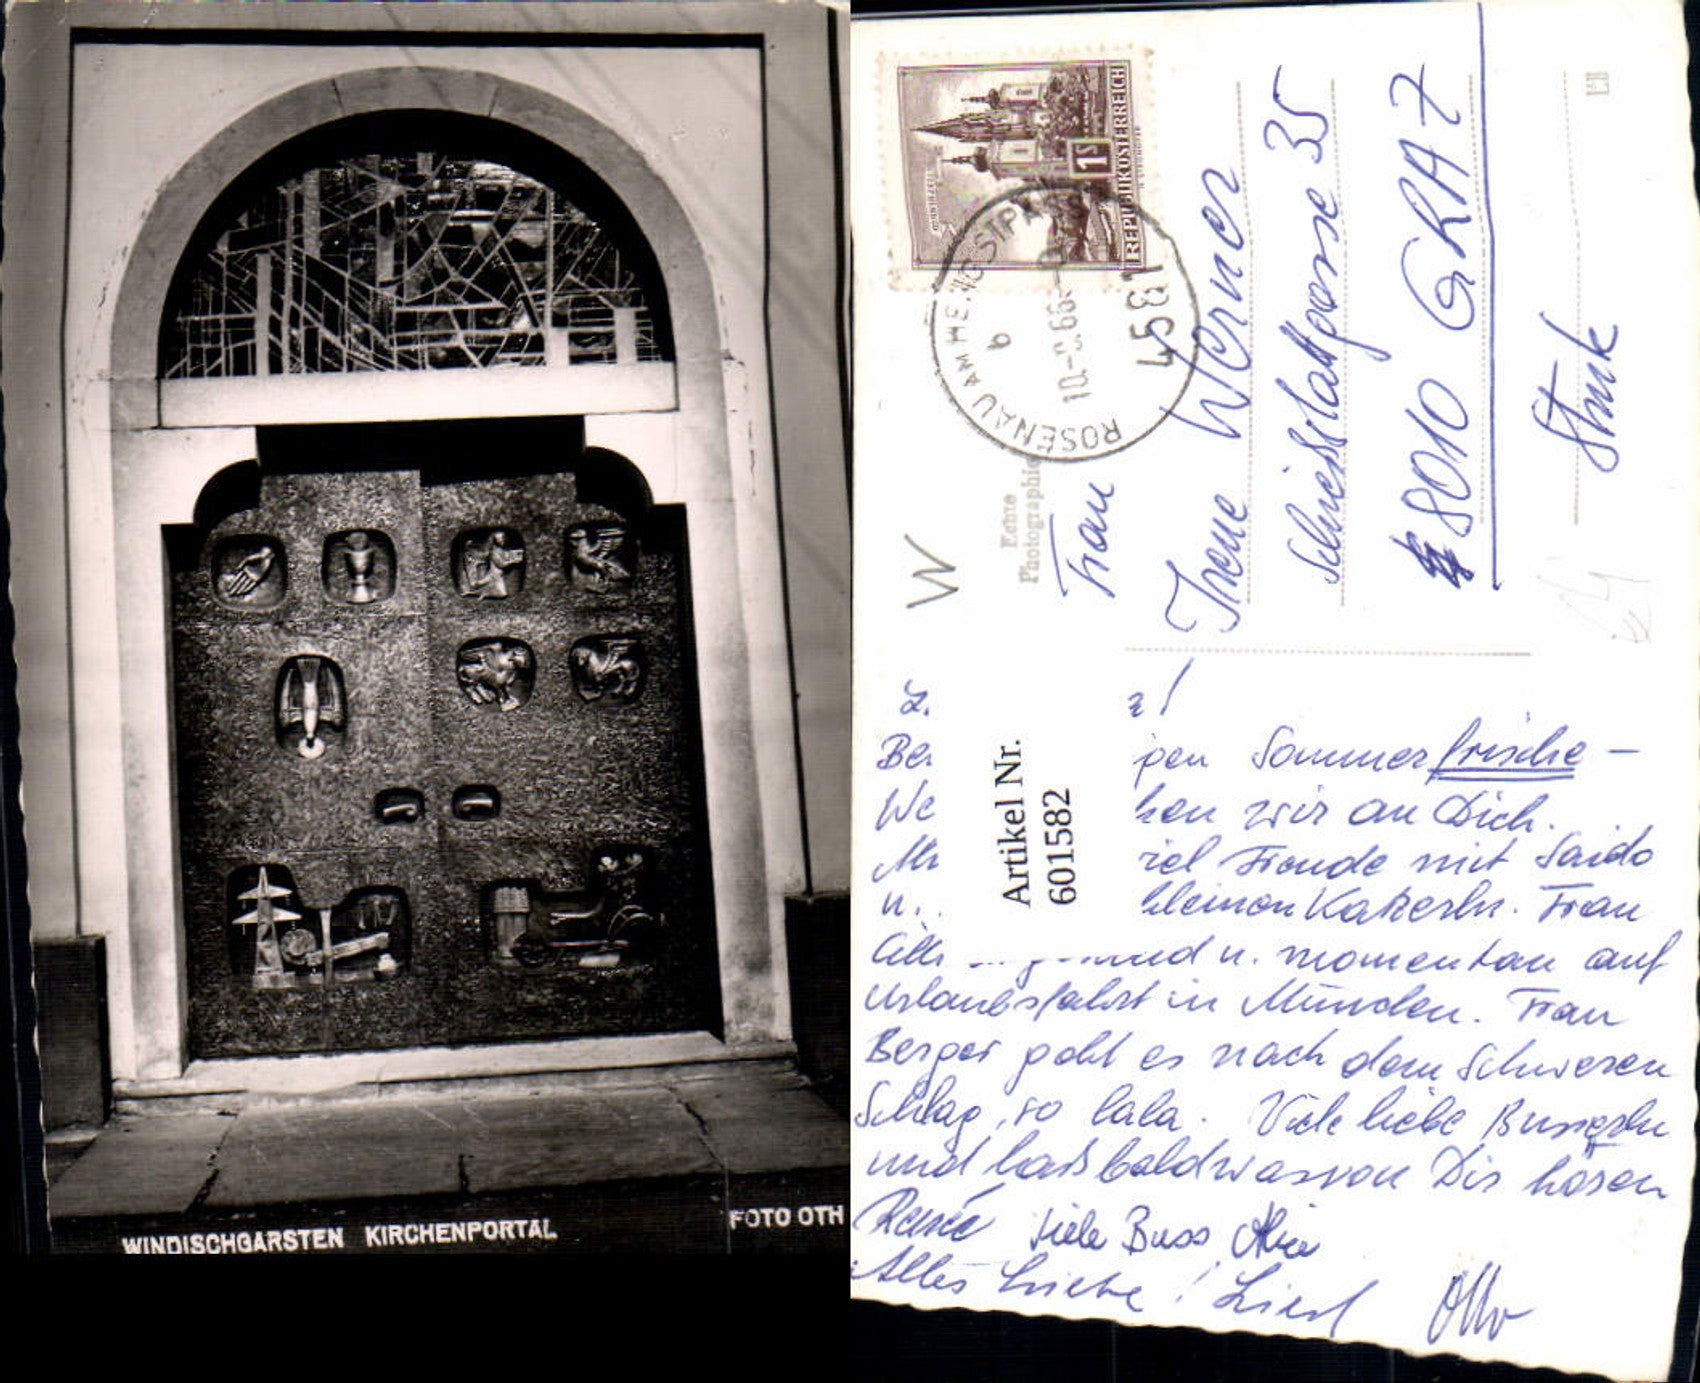 WINDISCHGARSTEN KIRCHENPORTAL
FOTO OTH
REPUBLIK ÖSTERREICH
1S
ROSENAU AM HENGSTPA
4581
b
10.-
66-
Echte
Photographie
W
Frau
Irene Werner
Schiesstattgasse 35
8010 GRAZ
Stmk
Artikel Nr.
601582
L. z!
Ber pen Sommerfrische –
We ken wir an Dich.
viel Freude mit Saido
u. kleinen Katzerln. Frau
u. momentan auf
Urlaubsfahrt in München. Frau
Berger geht es nach dem schweren
Schlag, so lala. Viele liebe Busserln
und lass bald was von Dir hören
Renée viele Buss
Alles Liebe! Liesl Otto